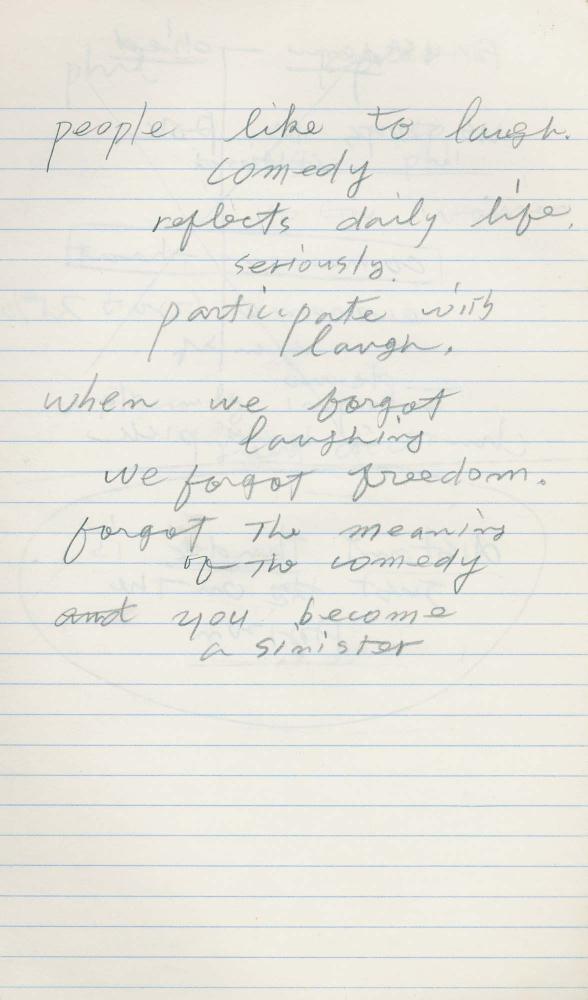 people like to laugh.
comedy
reflects daily life,
seriously.
participate with
laugh.
when we forgot
laughing
we forgot freedom.
forgot the meaning
of the comedy
and you become
a sinister